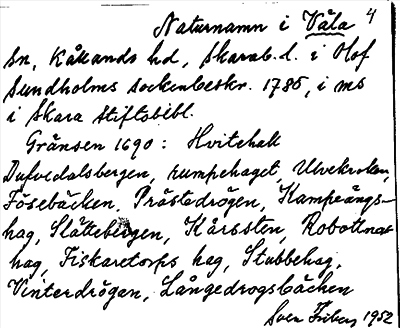 Naturnamn i Våla 4
sn, Kåkands hd, Skarab.l. i Olof
Sundholms sockenbeskr. 1786, i ms
i Skara Stiftsbibl.
Gränsen 1690: Hvitehall
Dufvedalsbergen, rumpehaget, Ulvekrokan,
Fösebäcken, Prästedrögen, Kampeängs-
hag, Slättebergen, Kårssten, Robottnat
hag, Fiskaretorps hag, Stubbehag,
Vinterdrögan, Långedrogsbäcken
Sven Friberg 1952